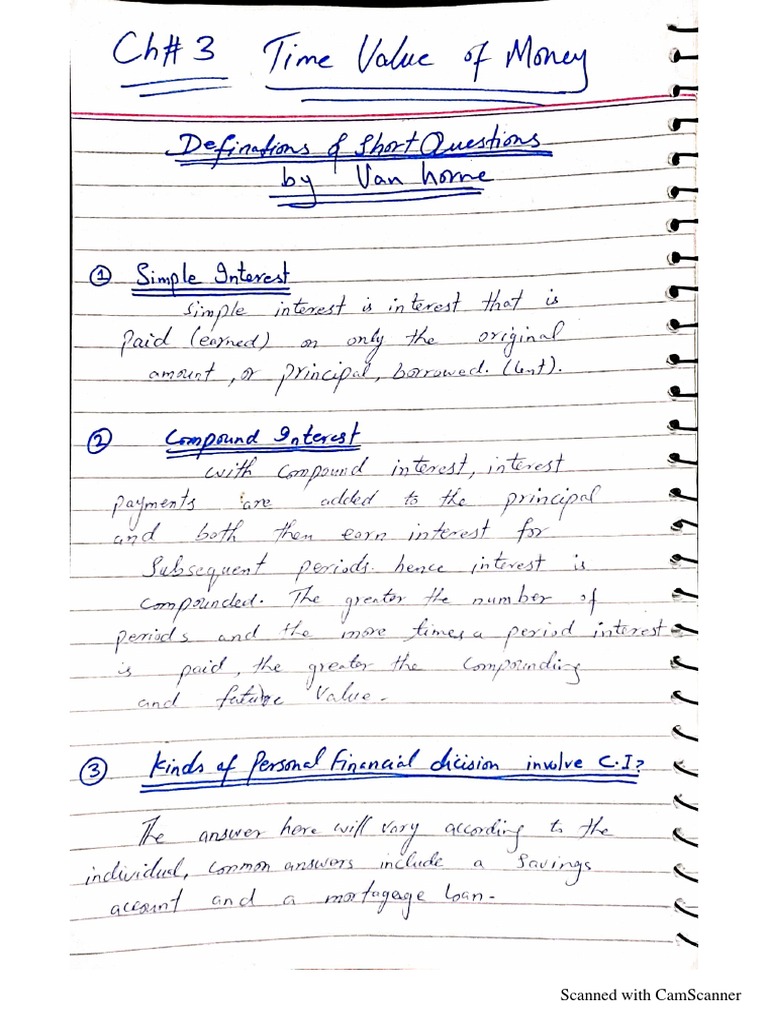 Ch# 3 Time Value of Money
Definations & Short Questions
by Van horne
① Simple Interest
simple interest is interest that is
paid (earned) on only the original
amount, or principal, borrowed. (lent).
② Compound Interest
with compound interest, interest
payments are added to the principal
and both then earn interest for
subsequent periods. hence interest is
compounded. The greater the number of
periods and the more times a period interest
is paid, the greater the compounding
and future value.
③ Kinds of Personal Financial dicision involve C.I?
The answer here will vary according to the
individual, common answers include a savings
account and a mortagage loan.
Scanned with CamScanner